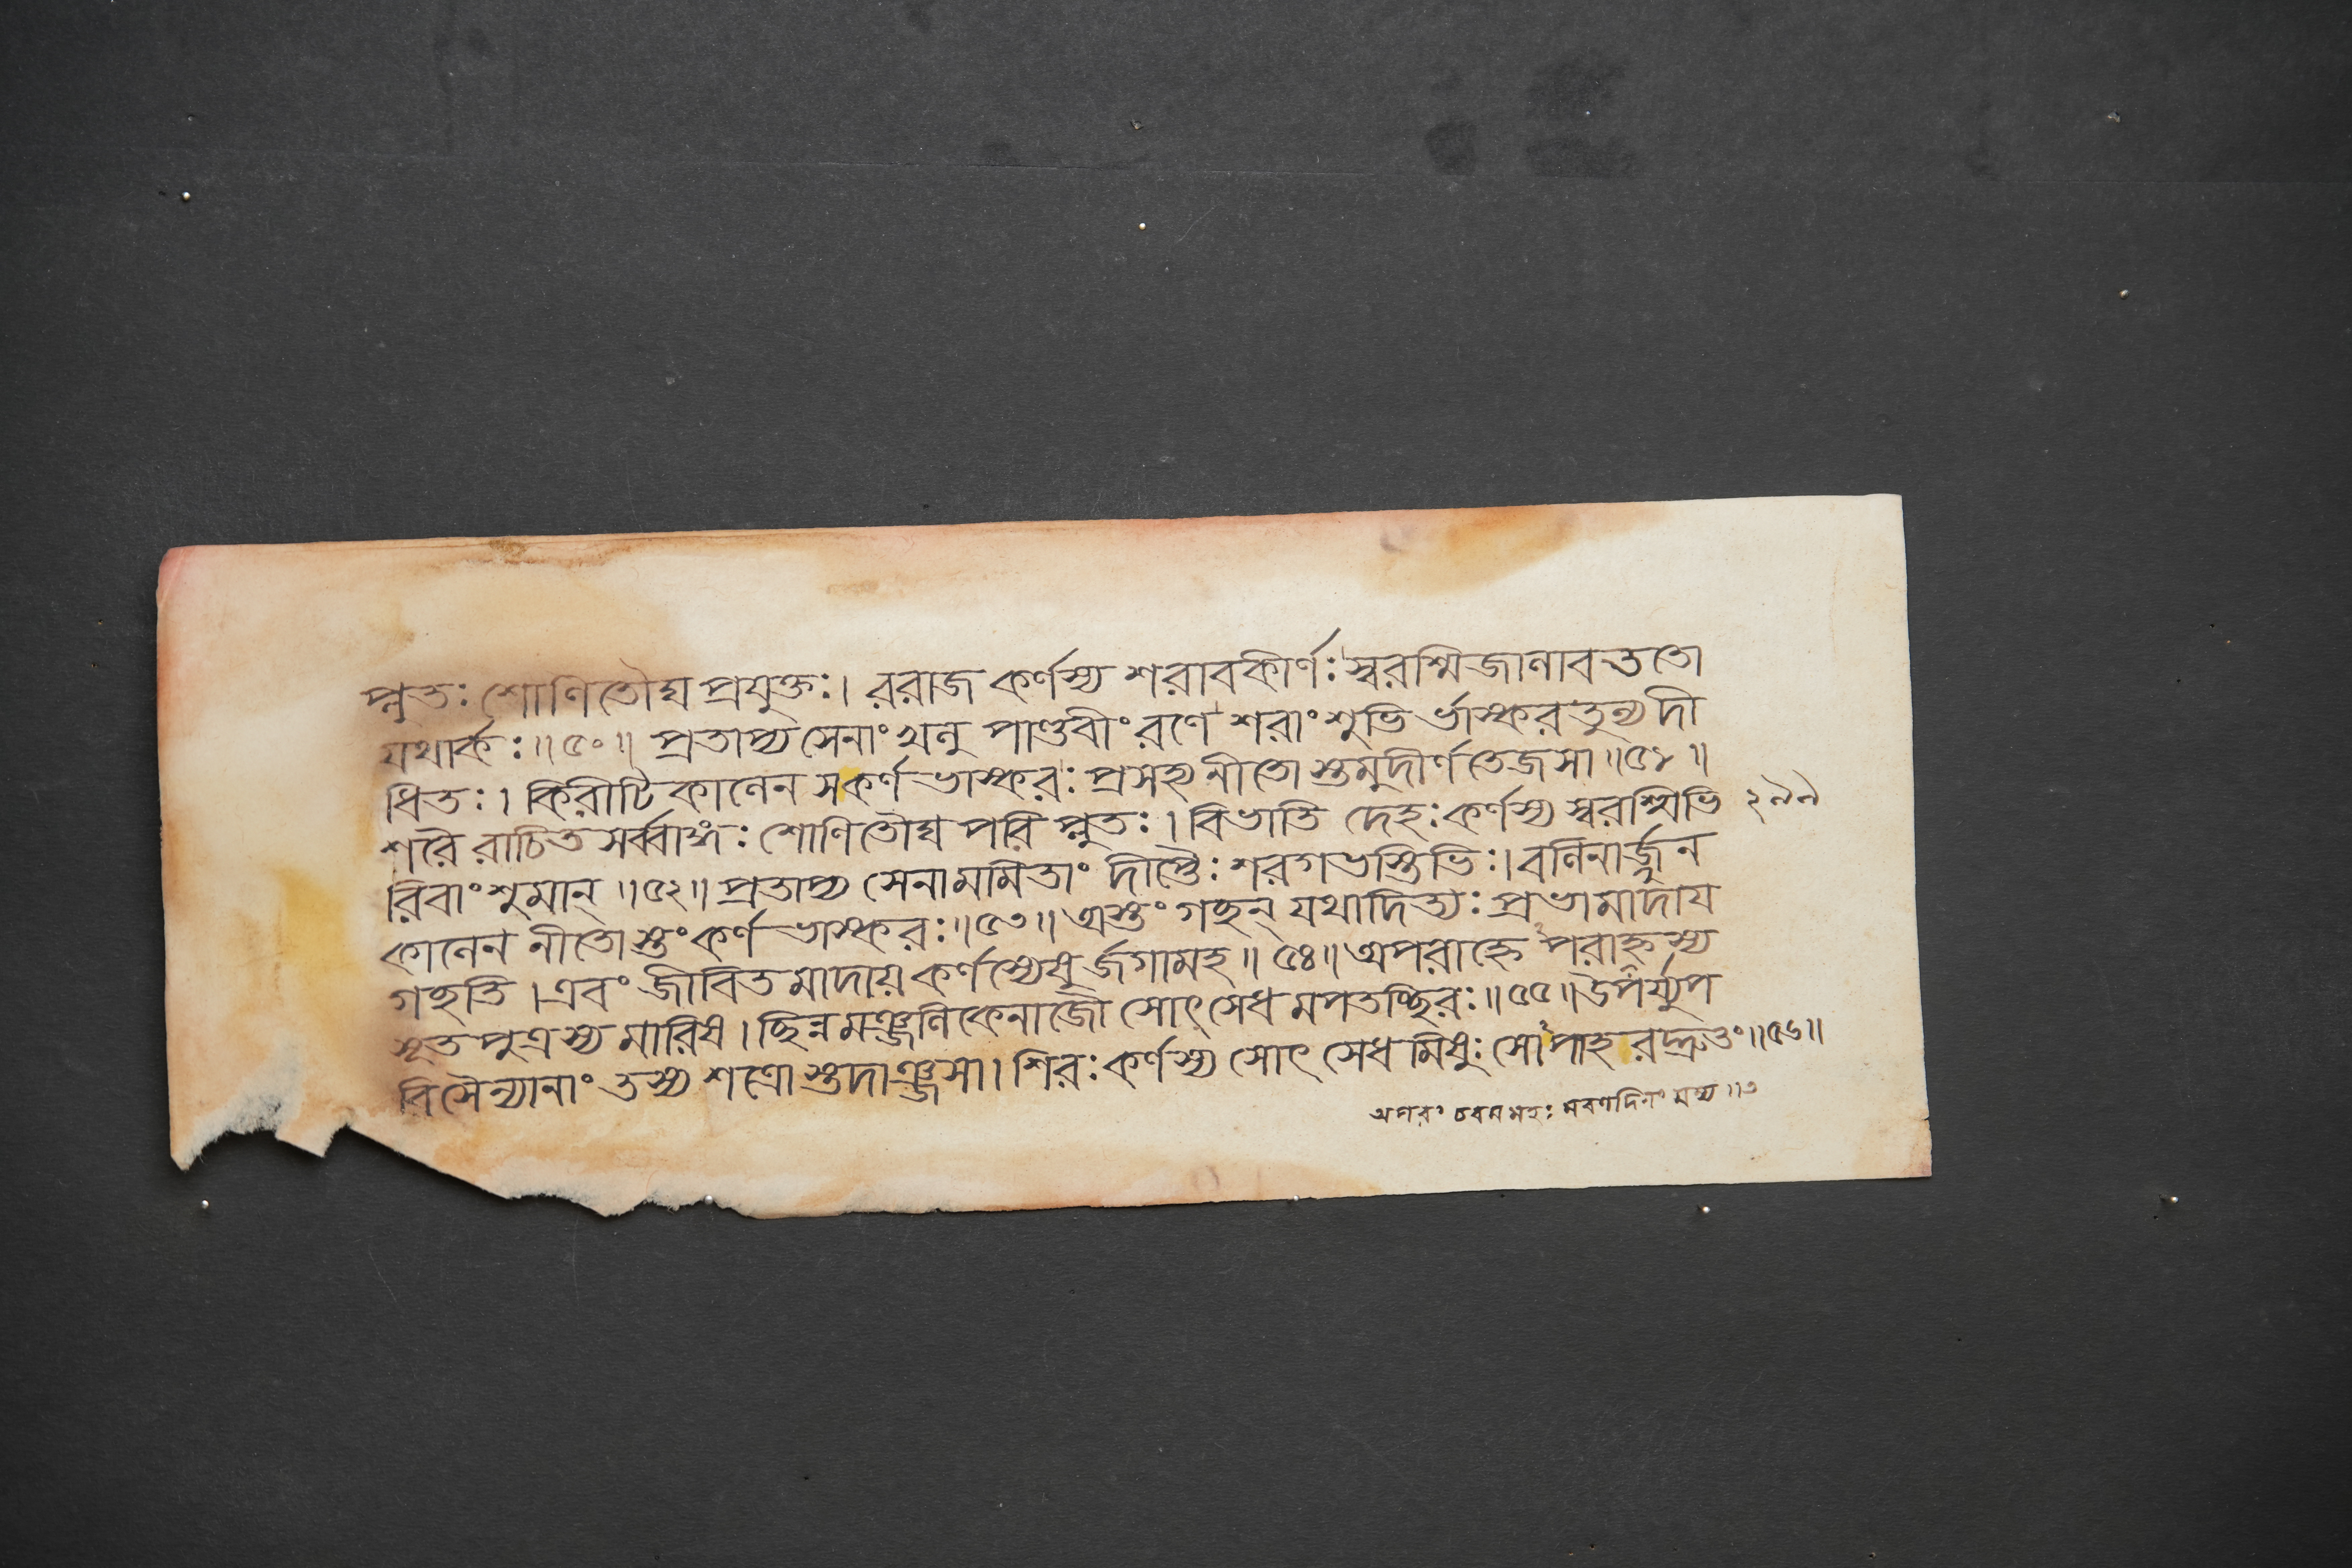 প্লুতঃ শোণিতৌঘ প্রযুক্তঃ। ররাজ কর্ণস্য শরাবকীর্ণঃ স্বরশ্মিজালাবততো
যথার্কঃ॥৫০॥ প্রতাপ্য সেনাং খলু পাণ্ডবীং রণে শরাংশুভি র্ভাস্করতুল্য দী
ধিতঃ। কিরীটিকালেন স কর্ণ ভাস্করঃ প্রসহ্য নীতো স্তমুদীর্ণ তেজসা॥৫১॥
শরৈ রাচিত সর্ব্বাঙ্গঃ শোণিতৌঘ পরি প্লুতঃ। বিভাতি দেহঃ কর্ণস্য স্বরশ্মিভি ২৯৯
রিবাংশুমান্॥৫২॥ প্রতাপ্য সেনামমিতাং দীপ্তৈঃ শরগভস্তিভিঃ। বলিনার্জুন
কালেন নীতোস্তং কর্ণ ভাস্করঃ॥৫৩॥ অস্তং গচ্ছন্ যথাদিত্যঃ প্রভামাদায়
গচ্ছতি। এবং জীবিত মাদায় কর্ণস্যেষু র্জগামহ॥৫৪॥ অপরাহ্নে পরাহ্নস্য
সূত পুত্রস্য মারিষ। ছিন্ন মঞ্জলিকেনাজৌ সোৎসেধ মপতচ্ছিরঃ॥৫৫॥ উপর্য্যুপ
রি সৈন্যানাং তস্য শত্রো স্তদাঞ্জসা। শিরঃ কর্ণস্য সোৎ সেধ মিষুঃ সো পাহ রদ্দ্রুতং॥৫৬॥